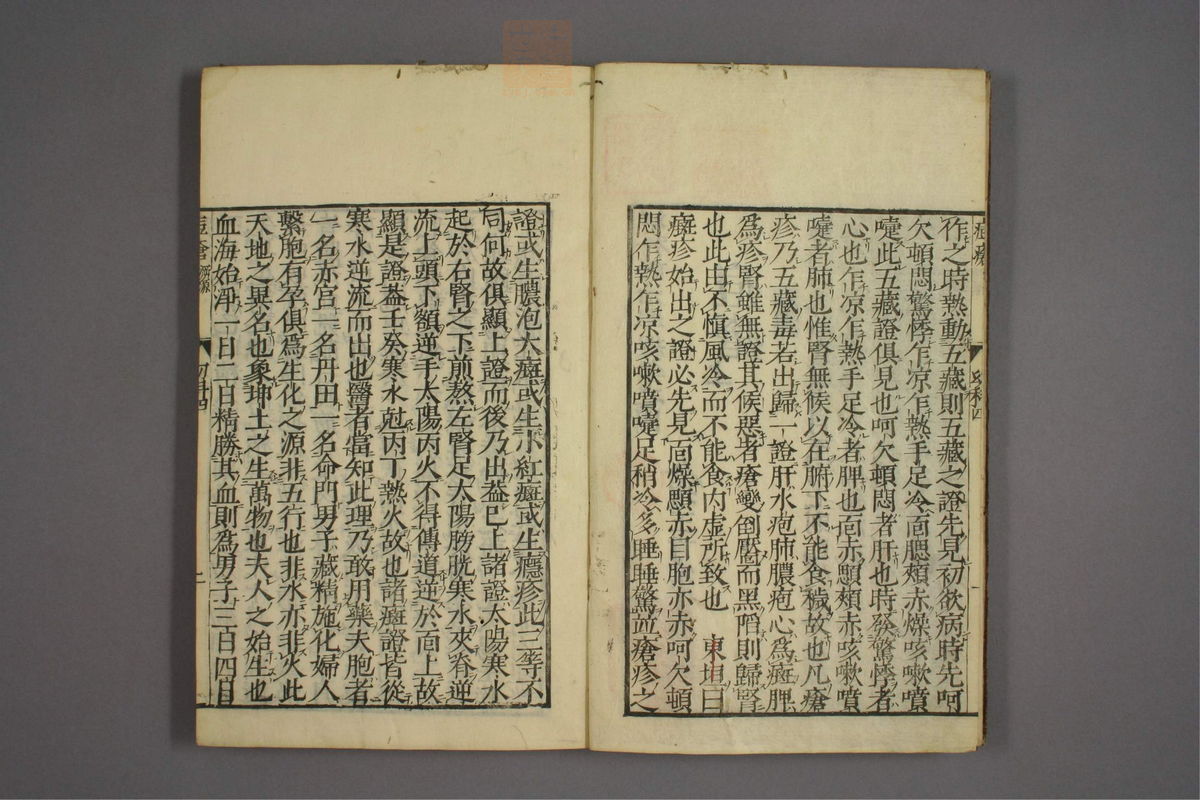 作之時熱動五藏則五藏之證先見初欲病時先呵
欠頓悶驚悸乍凉乍熱手足冷面腮頬赤燥咳嗽噴
嚔此五藏證俱見也呵欠頓悶者肝也時發驚悸者
心也乍凉乍熱手足冷者脾也面赤顋頬赤咳嗽噴
嚔者肺也惟腎無候以在腑下不能食穢故也凡瘡
疹乃五藏毒若出歸一證肝水疱肺膿疱心爲癍脾
爲疹腎雖無證其候惡者瘡變倒黶而黑陷則歸腎
也此由不慎風冷而不能食内虚所致也 東垣曰
癍疹始出之證必先見面燥顋赤目胞亦赤呵欠頓
悶乍熱乍凉咳嗽噴嚔足稍冷多睡睡驚並瘡疹之
證或生膿泡大癍或生小紅癍或生癮疹此三等不
同何故俱顯上證而後乃出葢已上諸證太陽寒水
起於右腎之下煎熬左腎足太陽膀胱寒水夾脊逆
流上頭下額逆手太陽丙火不得傳道逆於面上故
顯是證葢壬癸寒水尅丙丁熱火故也諸癍證皆從
寒水逆流而出也醫者當知此理乃敢用藥夫胞者
一名赤宫一名丹田一名命門男子藏精施化婦人
繫胞有孕俱爲生化之源非五行也非水亦非火此
天地之異名也象坤土之生萬物也夫人之始生也
血海始淨一日二日精勝其血則爲男子三日四日